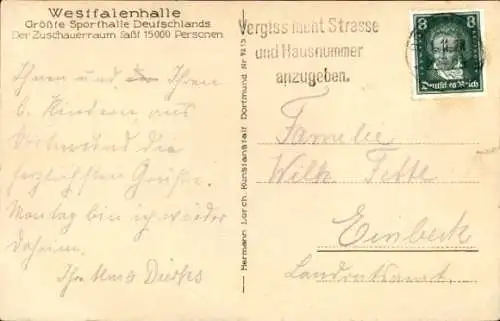 Westfalenhalle
Größte Sporthalle Deutschlands
Der Zuschauerraum faßt 15000 Personen.
Ihnen und Ihren
l. Kindern aus
Dortmund die
herzlichsten Grüße.
Montag bin ich wieder
daheim.
Ihr Dierks
Hermann Lorch, Kunstanstalt, Dortmund Nr 9215
Vergiss nicht Strasse
und Hausnummer
anzugeben.
8 8
Deutsches Reich
Familie
Wilh. Tette
Einbeck
Landratsamt.